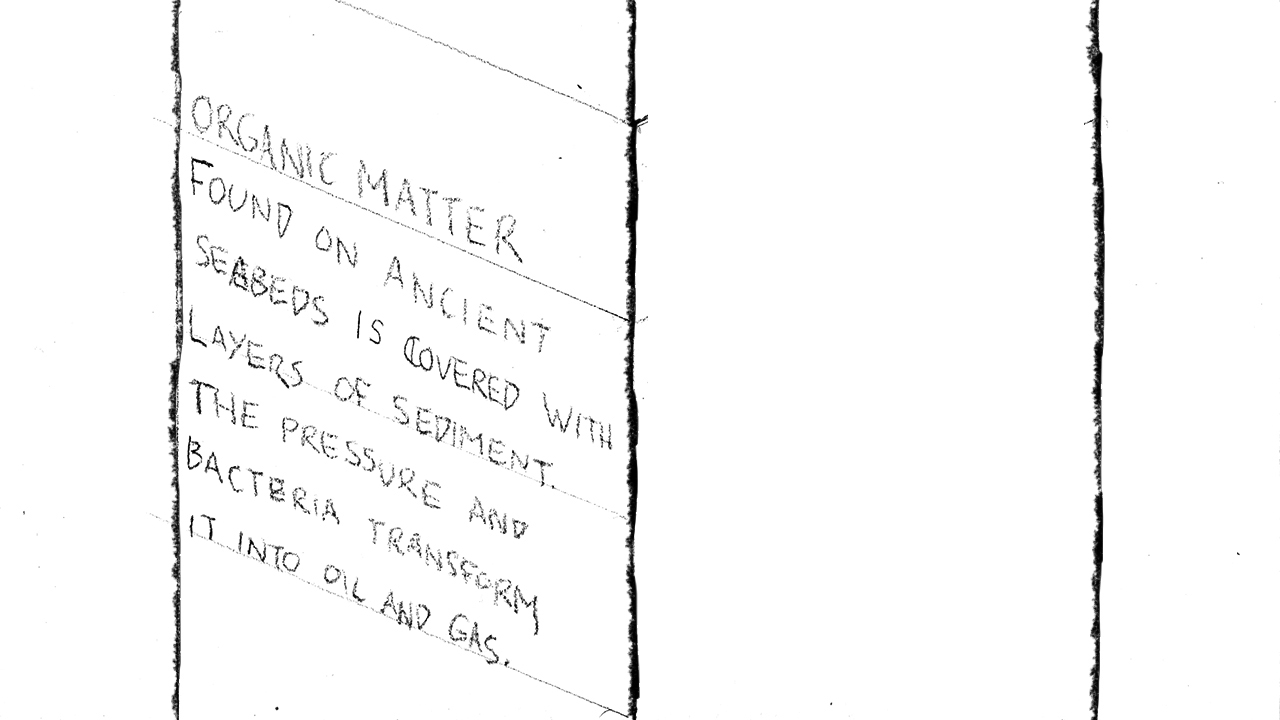 ORGANIC MATTER
FOUND ON ANCIENT
SEABEDS IS COVERED WITH
LAYERS OF SEDIMENT.
THE PRESSURE AND
BACTERIA TRANSFORM
IT INTO OIL AND GAS.